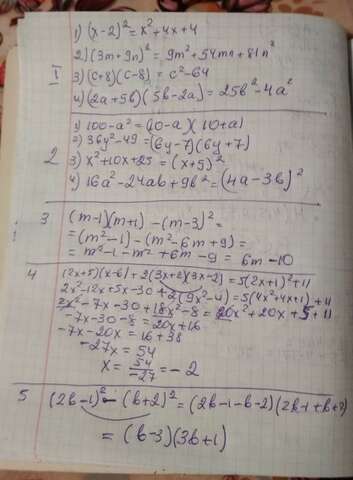 I
1) (x-2)² = x²+4x+4
2) (3m+9n)² = 9m²+54mn+81n²
3) (c+8)(c-8) = c²-64
4) (2a+5b)(5b-2a) = 25b²-4a²
2
1) 100-a² = (10-a)(10+a)
2) 36y²-49 = (6y-7)(6y+7)
3) x²+10x+25 = (x+5)²
4) 16a²-24ab+9b² = (4a-3b)²
3
(m-1)(m+1) - (m-3)² =
= (m²-1) - (m²-6m+9) =
= m²-1-m²+6m-9 = 6m-10
4
(2x+5)(x-6)+2(3x+2)(3x-2) = 5(2x+1)²+11
2x²-12x+5x-30+2(9x²-4) = 5(4x²+4x+1)+11
2x²-7x-30+18x²-8 = 20x²+20x+5+11
-7x-30-8 = 20x+16
-7x-20x = 16+38
-27x = 54
x = 54/-27 = -2
5
(2b-1)² - (b+2)² = (2b-1-b-2)(2b-1+b+2)
= (b-3)(3b+1)